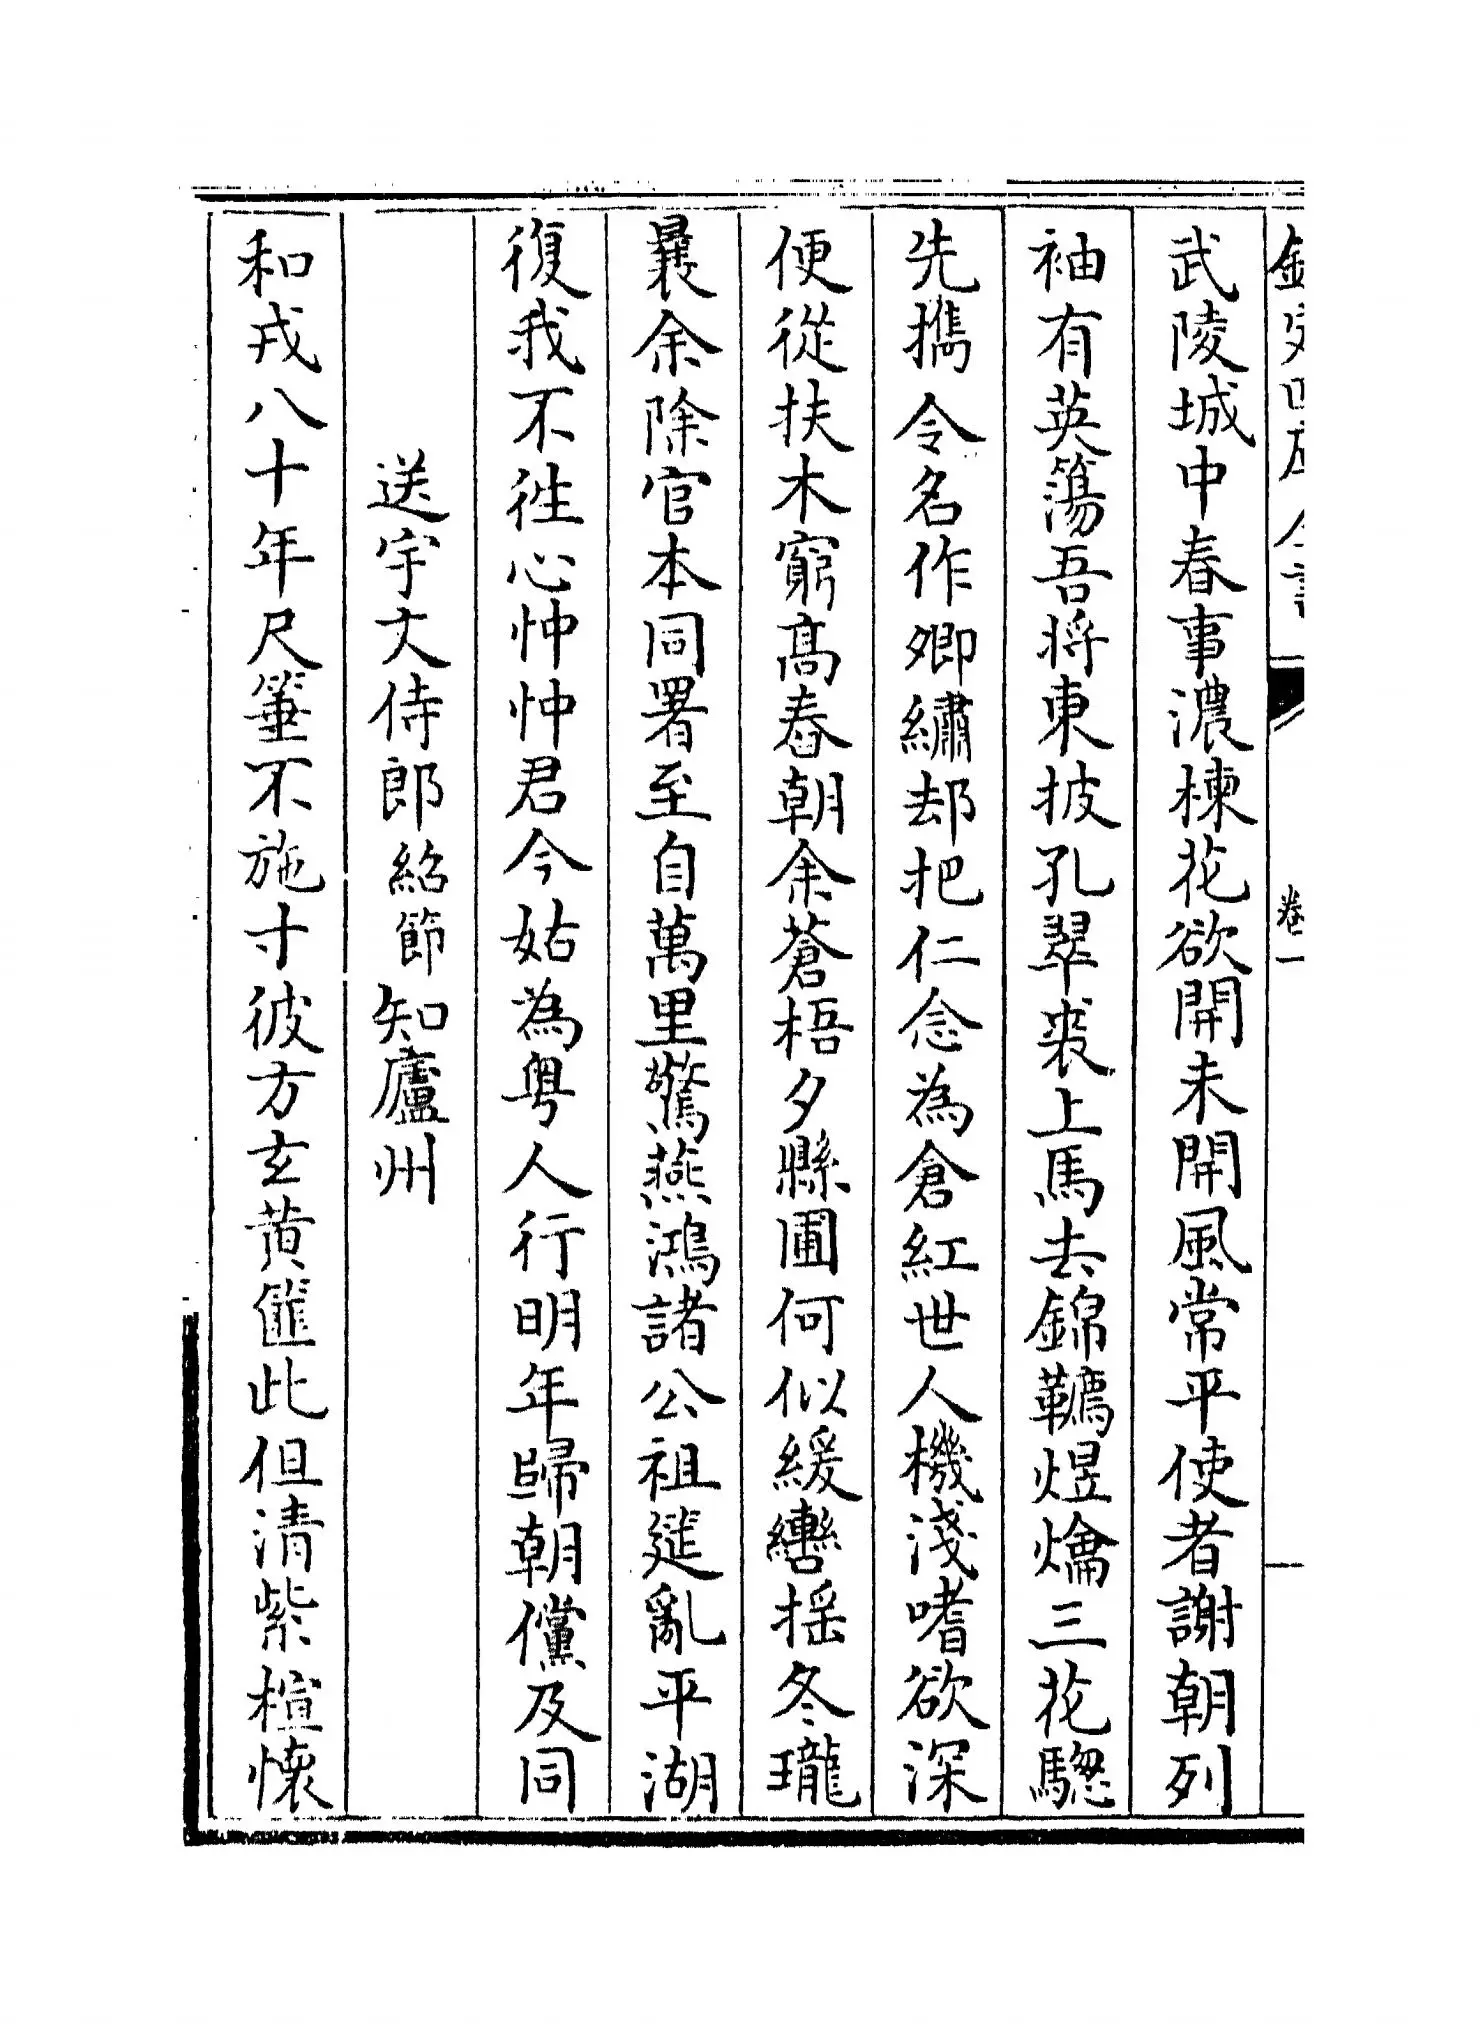 武陵城中春事濃楝花欲開未開風常平使者謝朝列
袖有英蕩吾將東披孔翠裘上馬去錦韉煜爚三花驄
先攜令名作卿繡却把仁念為倉紅世人機淺嗜欲深
便從扶木窮高舂朝余蒼梧夕縣圃何似緩轡揺冬瓏
曩余除官本同署至自萬里驚燕鴻諸公祖筵亂平湖
復我不徃心忡忡君今姑為粤人行明年歸朝儻及同
送宇文侍郎紹節知廬州
和戎八十年尺箠不施寸彼方玄黄篚此但清紫楦懐